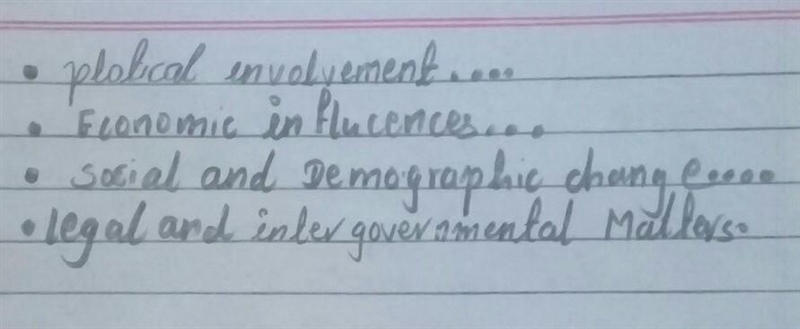 • plotical involvement....
• Economic influcences....
• social and Demographic change.....
• legal and intergovernmental Matters.